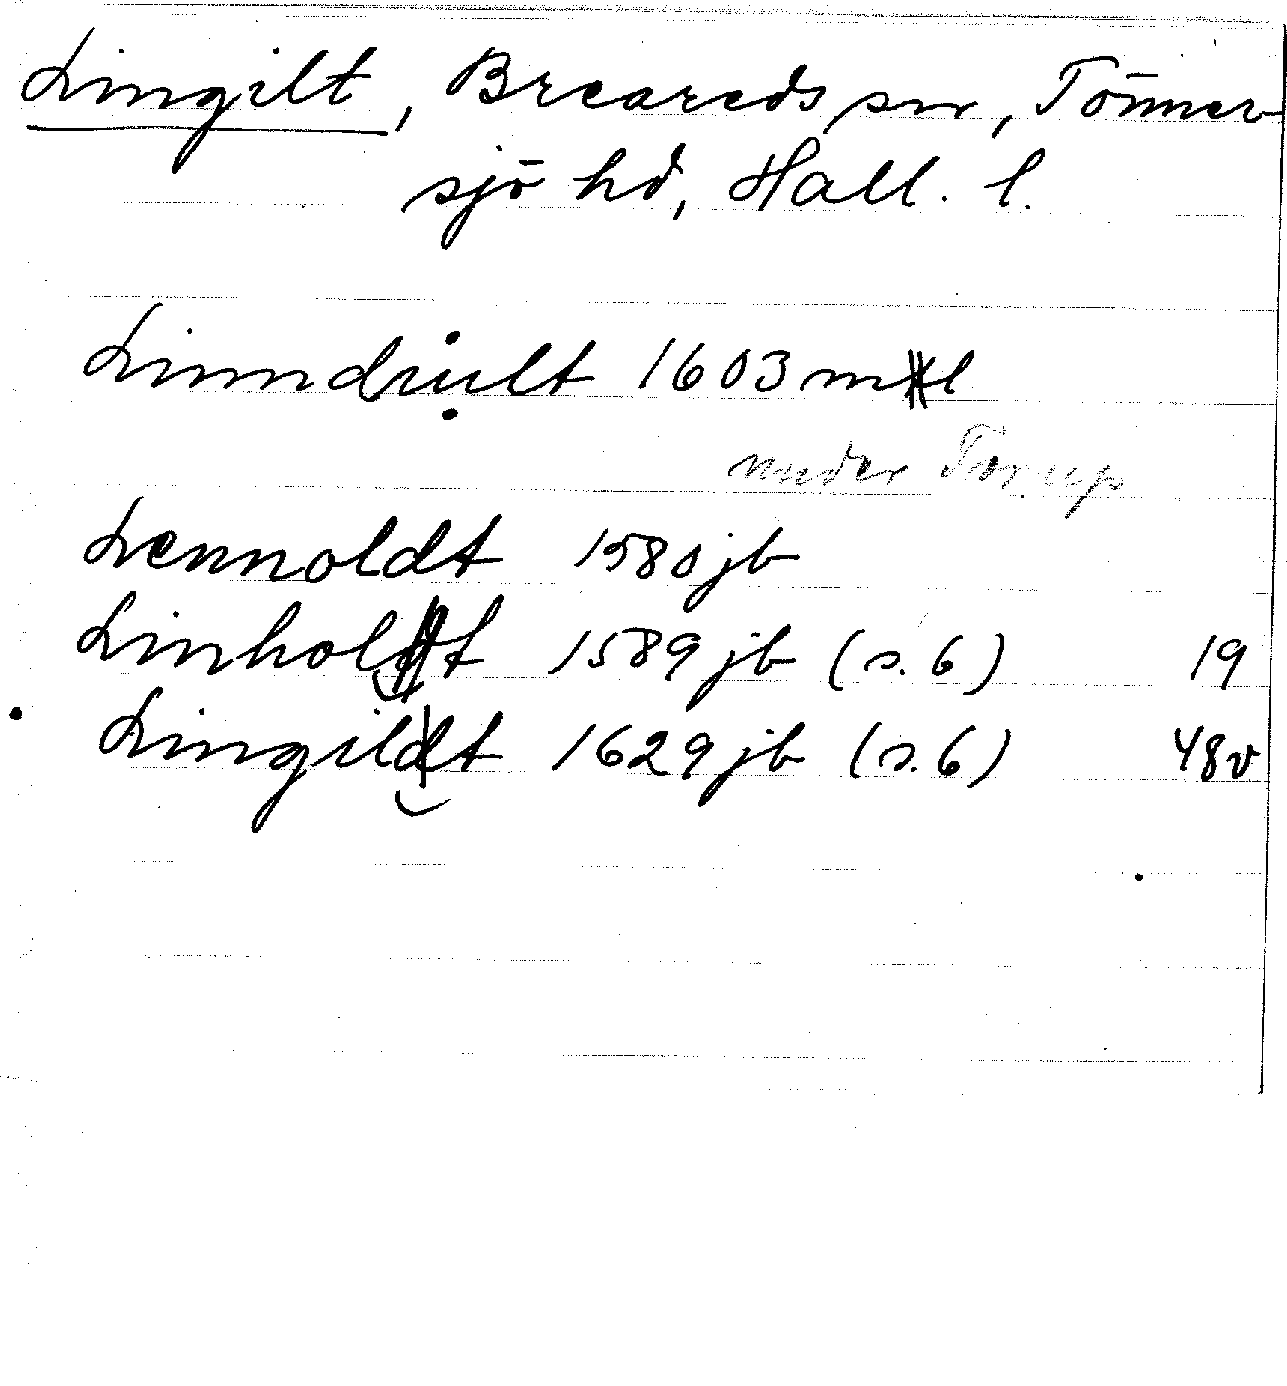 Lingilt, Breareds sn, Tönner
sjö hd, Hall. l.
Linndrult 1603 ml
under Torup
Lennoldt 1580 jb
Linholt 1589 jb (s. 6) 19
Lingilt 1629 jb (s. 6) 48v